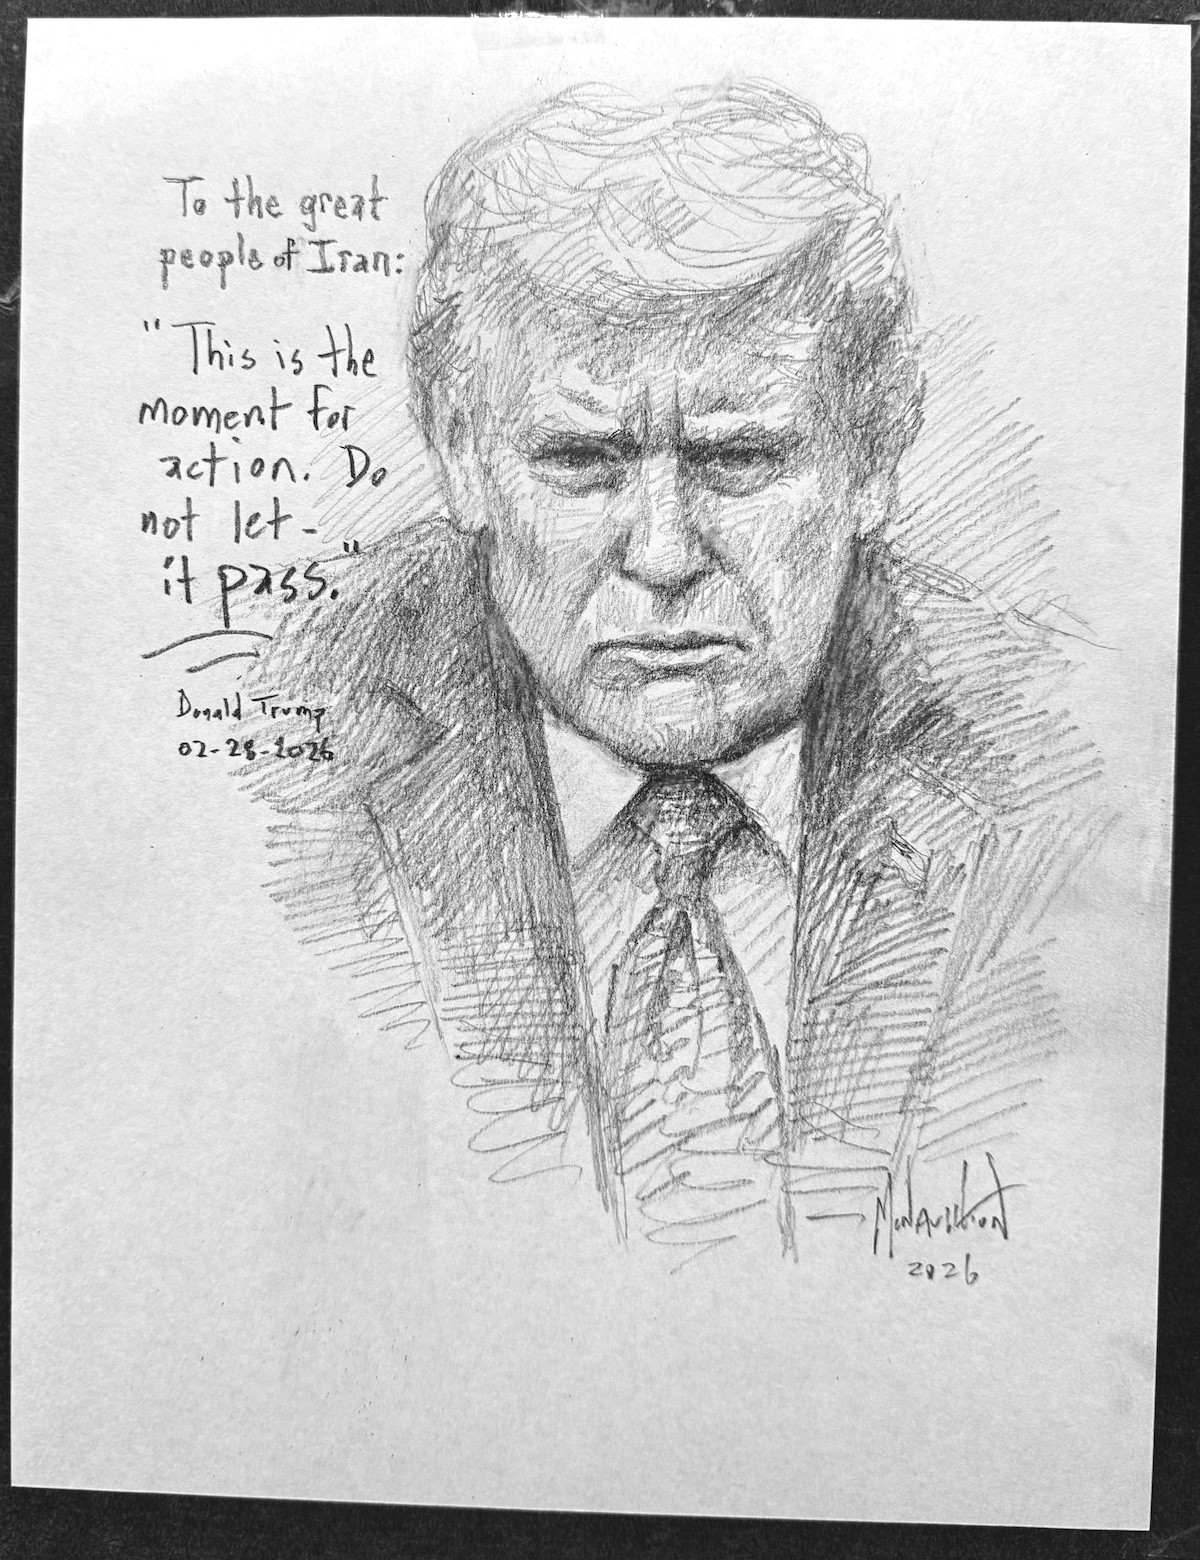 To the great
people of Iran:
"This is the
moment for
action. Do
not let
it pass."
Donald Trump
02-28-2026
2026